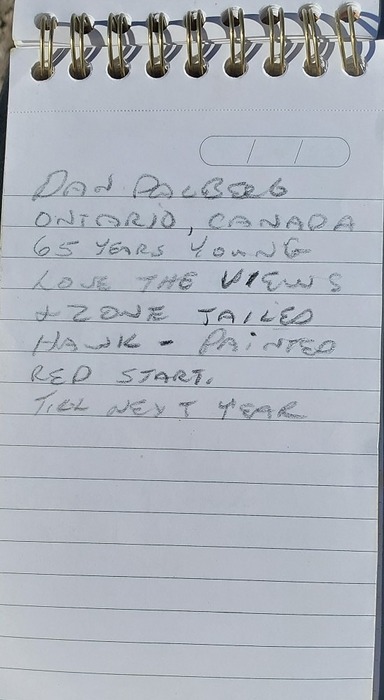 DAN
ONTARIO, CANADA
65 YEARS YOUNG
LOVE THE VIEWS
& ZONE TAILED
HAWK - PAINTED
RED START.
TILL NEXT YEAR